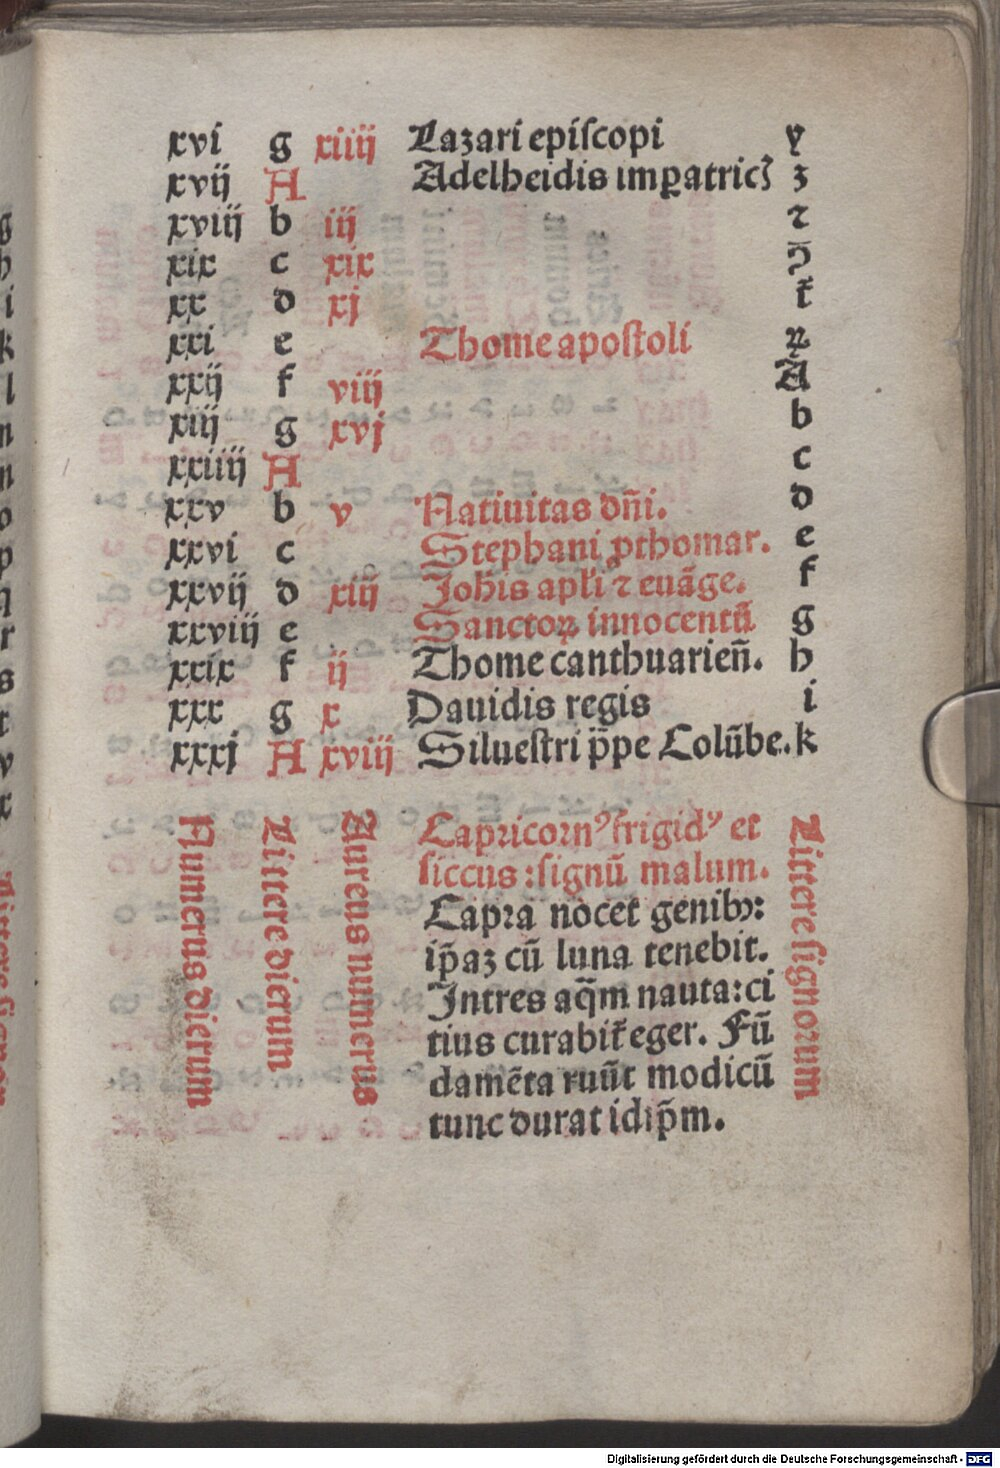 xvi g xiiij Lazari episcopi y
xvij A Adelheidis imꝑatricꝭ z
xviij b iij ⁊
xix c xix ꝯ
xx d xj t̄
xxi e Thome apostoli ꝝ
xxij f viij A
xiij g xvj b
xxiiij A c
xxv b v Natiuitas dn̄i. d
xxvi c Stephani ꝓthomar. e
xxvij d xiij Joh̄is apl̄i ⁊ euāge. f
xxviij e Sanctoꝝ innocentū g
xxix f ij Thome canthuarien̄. h
xxx g x Dauidis regis i
xxxj A xviij Siluestri p̄pe Colūbe. k
Numerus dierum
Littere dierum
Aureus numerus
Capricornꝰ frigidꝰ et
siccus : signū malum.
Capra nocet genibꝫ:
ip̄aꝫ cū luna tenebit.
Intres aq̄m nauta: ci
tius curabit̄ eger. Fū
damēta ruūt modicū
tunc durat id ip̄m.
Littere signorum
Digitalisierung gefördert durch die Deutsche Forschungsgemeinschaft - DFG